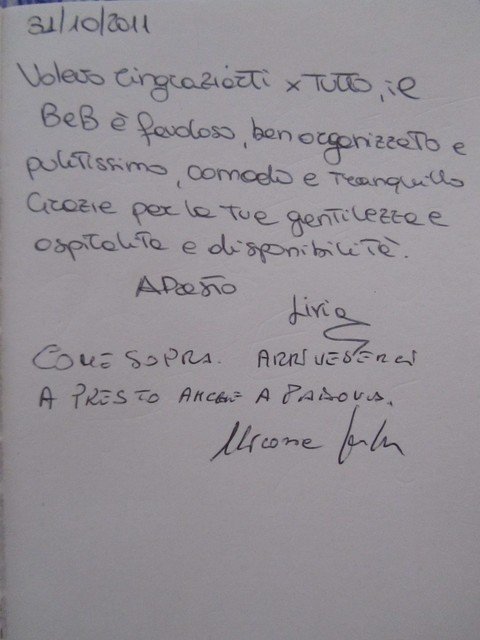 31/10/2011
Volevo ringraziarti x tutto, il
BeB è favoloso, ben organizzato e
pulitissimo, comodo e tranquillo
Grazie per la tue gentilezza e
ospitalita e disponibilità.
A Presto
Livia
COME SOPRA. ARRIVEDERCI
A PRESTO ANCHE A PADOVA.